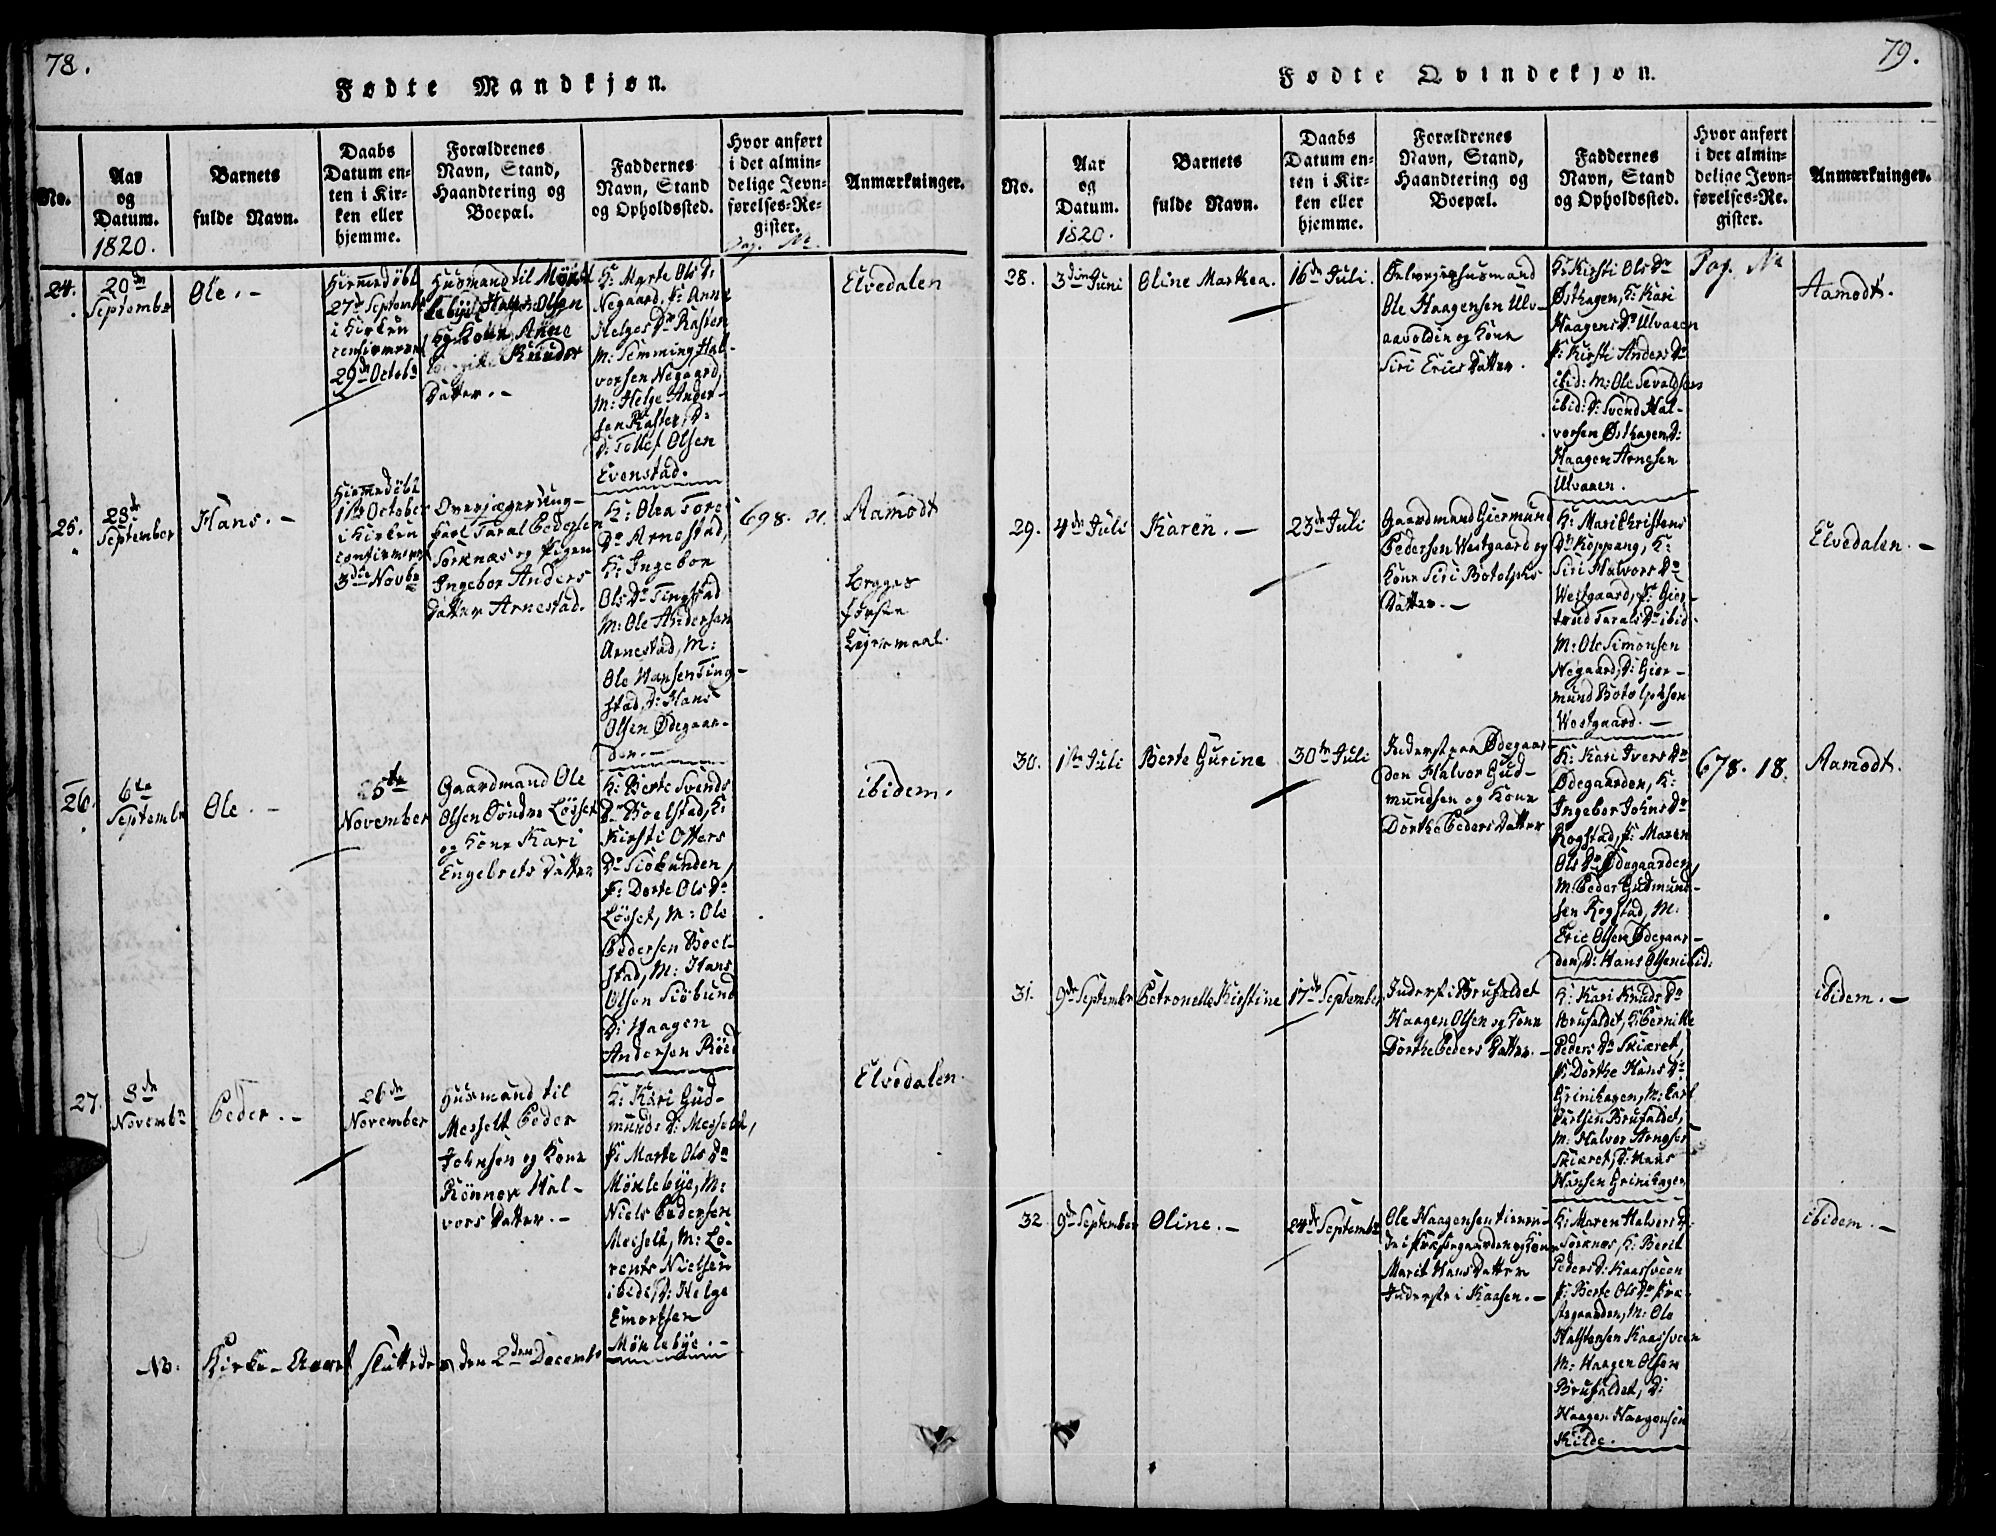 78.
Fødte Mandkjøn.
No.
Aar
og
Datum.
1820.
Barnets
fulde Navn.
Daabs
Datum en-
ten i Kir-
ken eller
hjemme.
Forældrenes
Navn, Stand,
Haandtering og
Boepæl.
Faddernes
Navn, Stand
og Opholdssted.
Hvor anført
i det almin-
delige Jevn-
førelses-Re-
gister.
Pag. No.
Anmærkninger.
24.
20de
Septembr
Ole. -
Hiemmedøbt
27de Septembr
i Kirken
confirmeret
29de Octobr
Husmand til
Olsen
og Kone Anne
Knuds
Datter. -
K: Marte Ols Dr
Negaard, P: Anne
Helges Dr Rasten
M: Semming Hal-
vorsen Negaard,
M: Helge Ander-
sen Rasten, D:
D: Tollef Olsen
Evenstad.
Elvedalen
25.
28de
September
Hans. -
Hiemmedøbt
1ste October
i Kirken
confirmeret
3die Novbr
Overjæger Ung-
karl Taral Pedersen
Sorknæs og Pigen
Ingebor Anders
Datter Arnestad.
K: Olea Tores
Dr Arnestad,
K: Ingebor
Ols Dr Tingstad
M: Ole Andersen
Arnestad, M:
Ole Hansen Ting-
stad, D: Hans
Olsen Ødegaar-
den. -
698. 21.
Aamodt
Begges
første
Leiermaal.
26.
6te
Septembr
Ole. -
25de
November
Gaardmand Ole
Olsen Søndre Løsset
og Kone Kari
Engebrets Datter
K: Berte Svends
Dr Boelstad, K:
Kirsti Otters
Dr Siøbunden,
P: Dorte Ols Dr
Løsset, M: Ole
Pedersen Boel-
stad, M: Hans
Olsen Siøbund
D: Haagen
Andersen Røed
ibidem.
27.
8de
Novembr
Peder. -
26de
November
Husmand til
Messelt Peder
Johnsen og Kone
Rønnov Hal-
vors Datter. -
K: Kari Gud-
munds D: Messelt,
P: Marte Ols Dr
Møklebye, M:
Niels Pedersen
Messelt, M: Lo-
rents Nielsen
ibid, D: Helge
Emortsen
Møklebye. -
Elvedalen.
NB. Kirke-Aaret sluttedes den 2den Decembr
79.
Fødte Qvindekjøn.
No.
Aar
og
Datum.
1820.
Barnets
fulde Navn.
Daabs
Datum en-
ten i Kir-
ken eller
hjemme.
Forældrenes
Navn, Stand,
Haandtering og
Boepæl.
Faddernes
Navn, Stand
og Opholdssted.
Hvor anført
i det almin-
delige Jevn-
førelses-Re-
gister.
Pag. No
Anmærkninger.
28.
3die Juni
Oline Marthea.
16de Juli.
Selveierhusmand
Ole Haagensen Ulv-
aavolden og Kone
Siri Erics Datter.
K: Kirsti Ols Dr
Østhagen, K: Kari
Haagens Dr Ulvaaen
P: Kirsti Anders Dr
ibid: M: Ole Sevaldsen
ibid: D: Svend Hal-
vorsen Østhagen, D:
Haagen Arnesen
Ulvaaen.
Aamodt.
29.
4de Juli
Karen. -
23de Juli
Gaardmand Giermund
Pedersen Westgaard og
Kone Siri Botolphs
Datter. -
K: Mari Christens
Dr Koppang, K:
Siri Halvors Dr
Westgaard, P: Gier-
trud Tarals Dr ibid:
M: Ole Simonsen
Negaard, D: Gier-
mund Botolphsen
Westgaard. -
Elvedalen. -
30.
1ste Juli
Berte Gurine
30te Juli
Inderst paa Ødegaar-
den Halvor Gud-
mundsen og Kone
Dorthe Peders Datter
K: Kari Ivers Dr
Ødegaarden, K:
Ingebor Johns Dr
Rogstad, P: Maren
Ols Dr Ødegaarden,
M: Peder Gudmund-
sen Rogstad, M:
Eric Olsen Ødegaar-
den, D: Hans Olsen ibid:
678. 18.
Aamodt.
31.
9de Septembr
Petronelle Kirstine
17de September
Inderst i Brufaldet
Haagen Olsen og Kone
Dorthe Peders Datter. -
K: Kari Knuds Dr
Brufaldet, K: Pernille
Peders Dr Skiæret,
P: Dorthe Hans Dr
Grinihagen, M: Carl
Carlsen Brufaldet,
M: Halvor Arnesen
Skiæret, D: Hans
Hansen Grinihagen
ibidem. -
32.
9de September
Oline. -
24de Septembr
Ole Haagensen tienen-
de i Præstegaarden og Kone
Marit Hans Datter
Inderste i Kaasen. -
K: Maren Halvors D:
Sorknæs, K: Berit
Peders D: Kaasveen
P: Berte Ols Dr Præ-
stegaarden, M: Ole
Halstensen Kaasveen
M: Haagen Olsen
Brufaldet, D:
Haagen Haagensen
Kilde.
ibidem. -